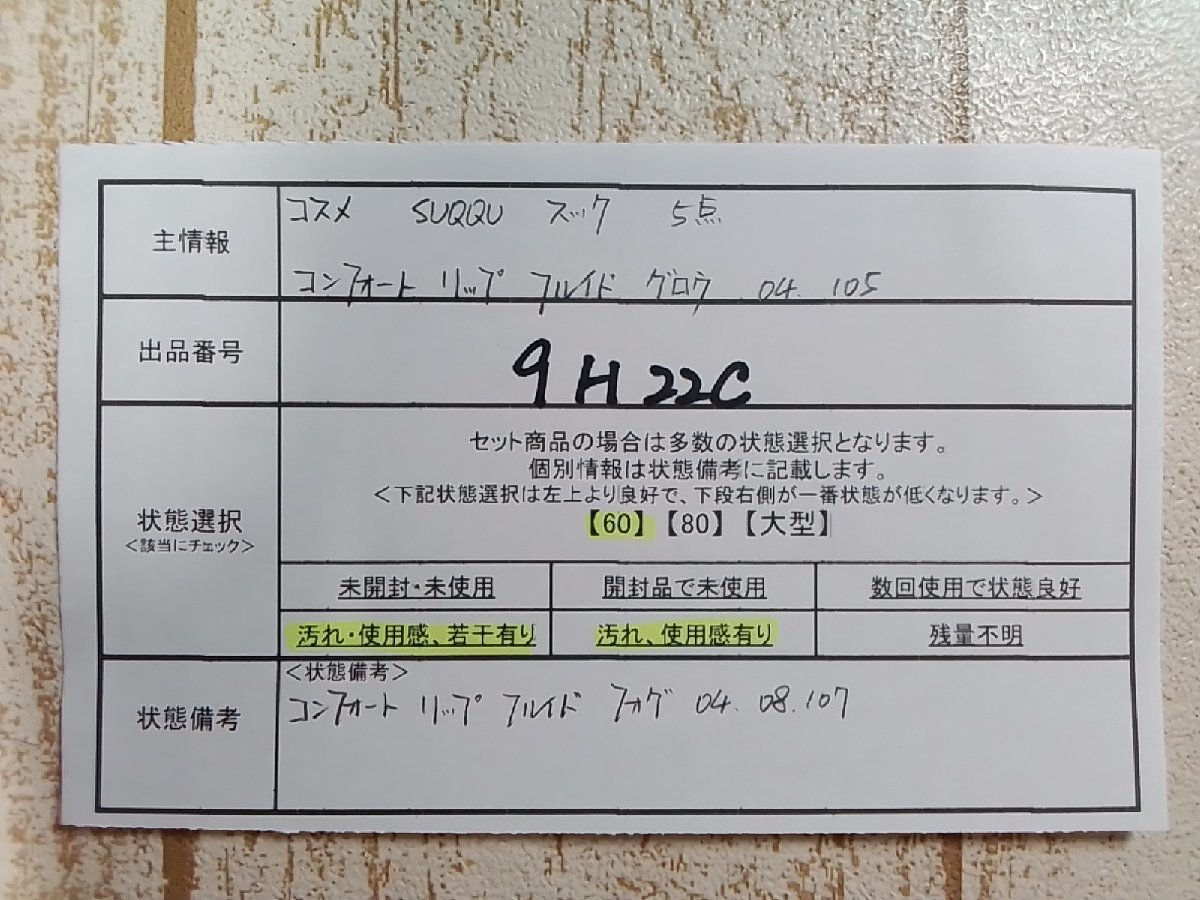 主情報
コスメ SUQQU スック 5点
コンフォート リップ フルイド グロウ 04. 105
出品番号
9H22C
状態選択
<該当にチェック>
セット商品の場合は多数の状態選択となります。
個別情報は状態備考に記載します。
<下記状態選択は左上より良好で、下段右側が一番状態が低くなります。>
【60】【80】【大型】
未開封・未使用 開封品で未使用 数回使用で状態良好
汚れ・使用感、若干有り 汚れ、使用感有り 残量不明
状態備考
<状態備考>
コンフォート リップ フルイド フォグ 04. 08. 107